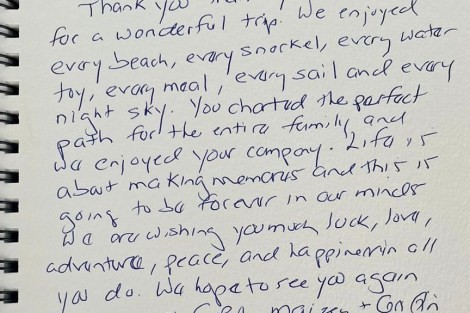 Thank you
for a wonderful trip. We enjoyed
every beach, every snorkel, every water
toy, every meal, every sail and every
night sky. You charted the perfect
path for the entire family and
we enjoyed your company. Life is
about making memories and this is
going to be forever in our minds
We are wishing you much luck, love,
adventure, peace, and happiness in all
you do. We hope to see you again